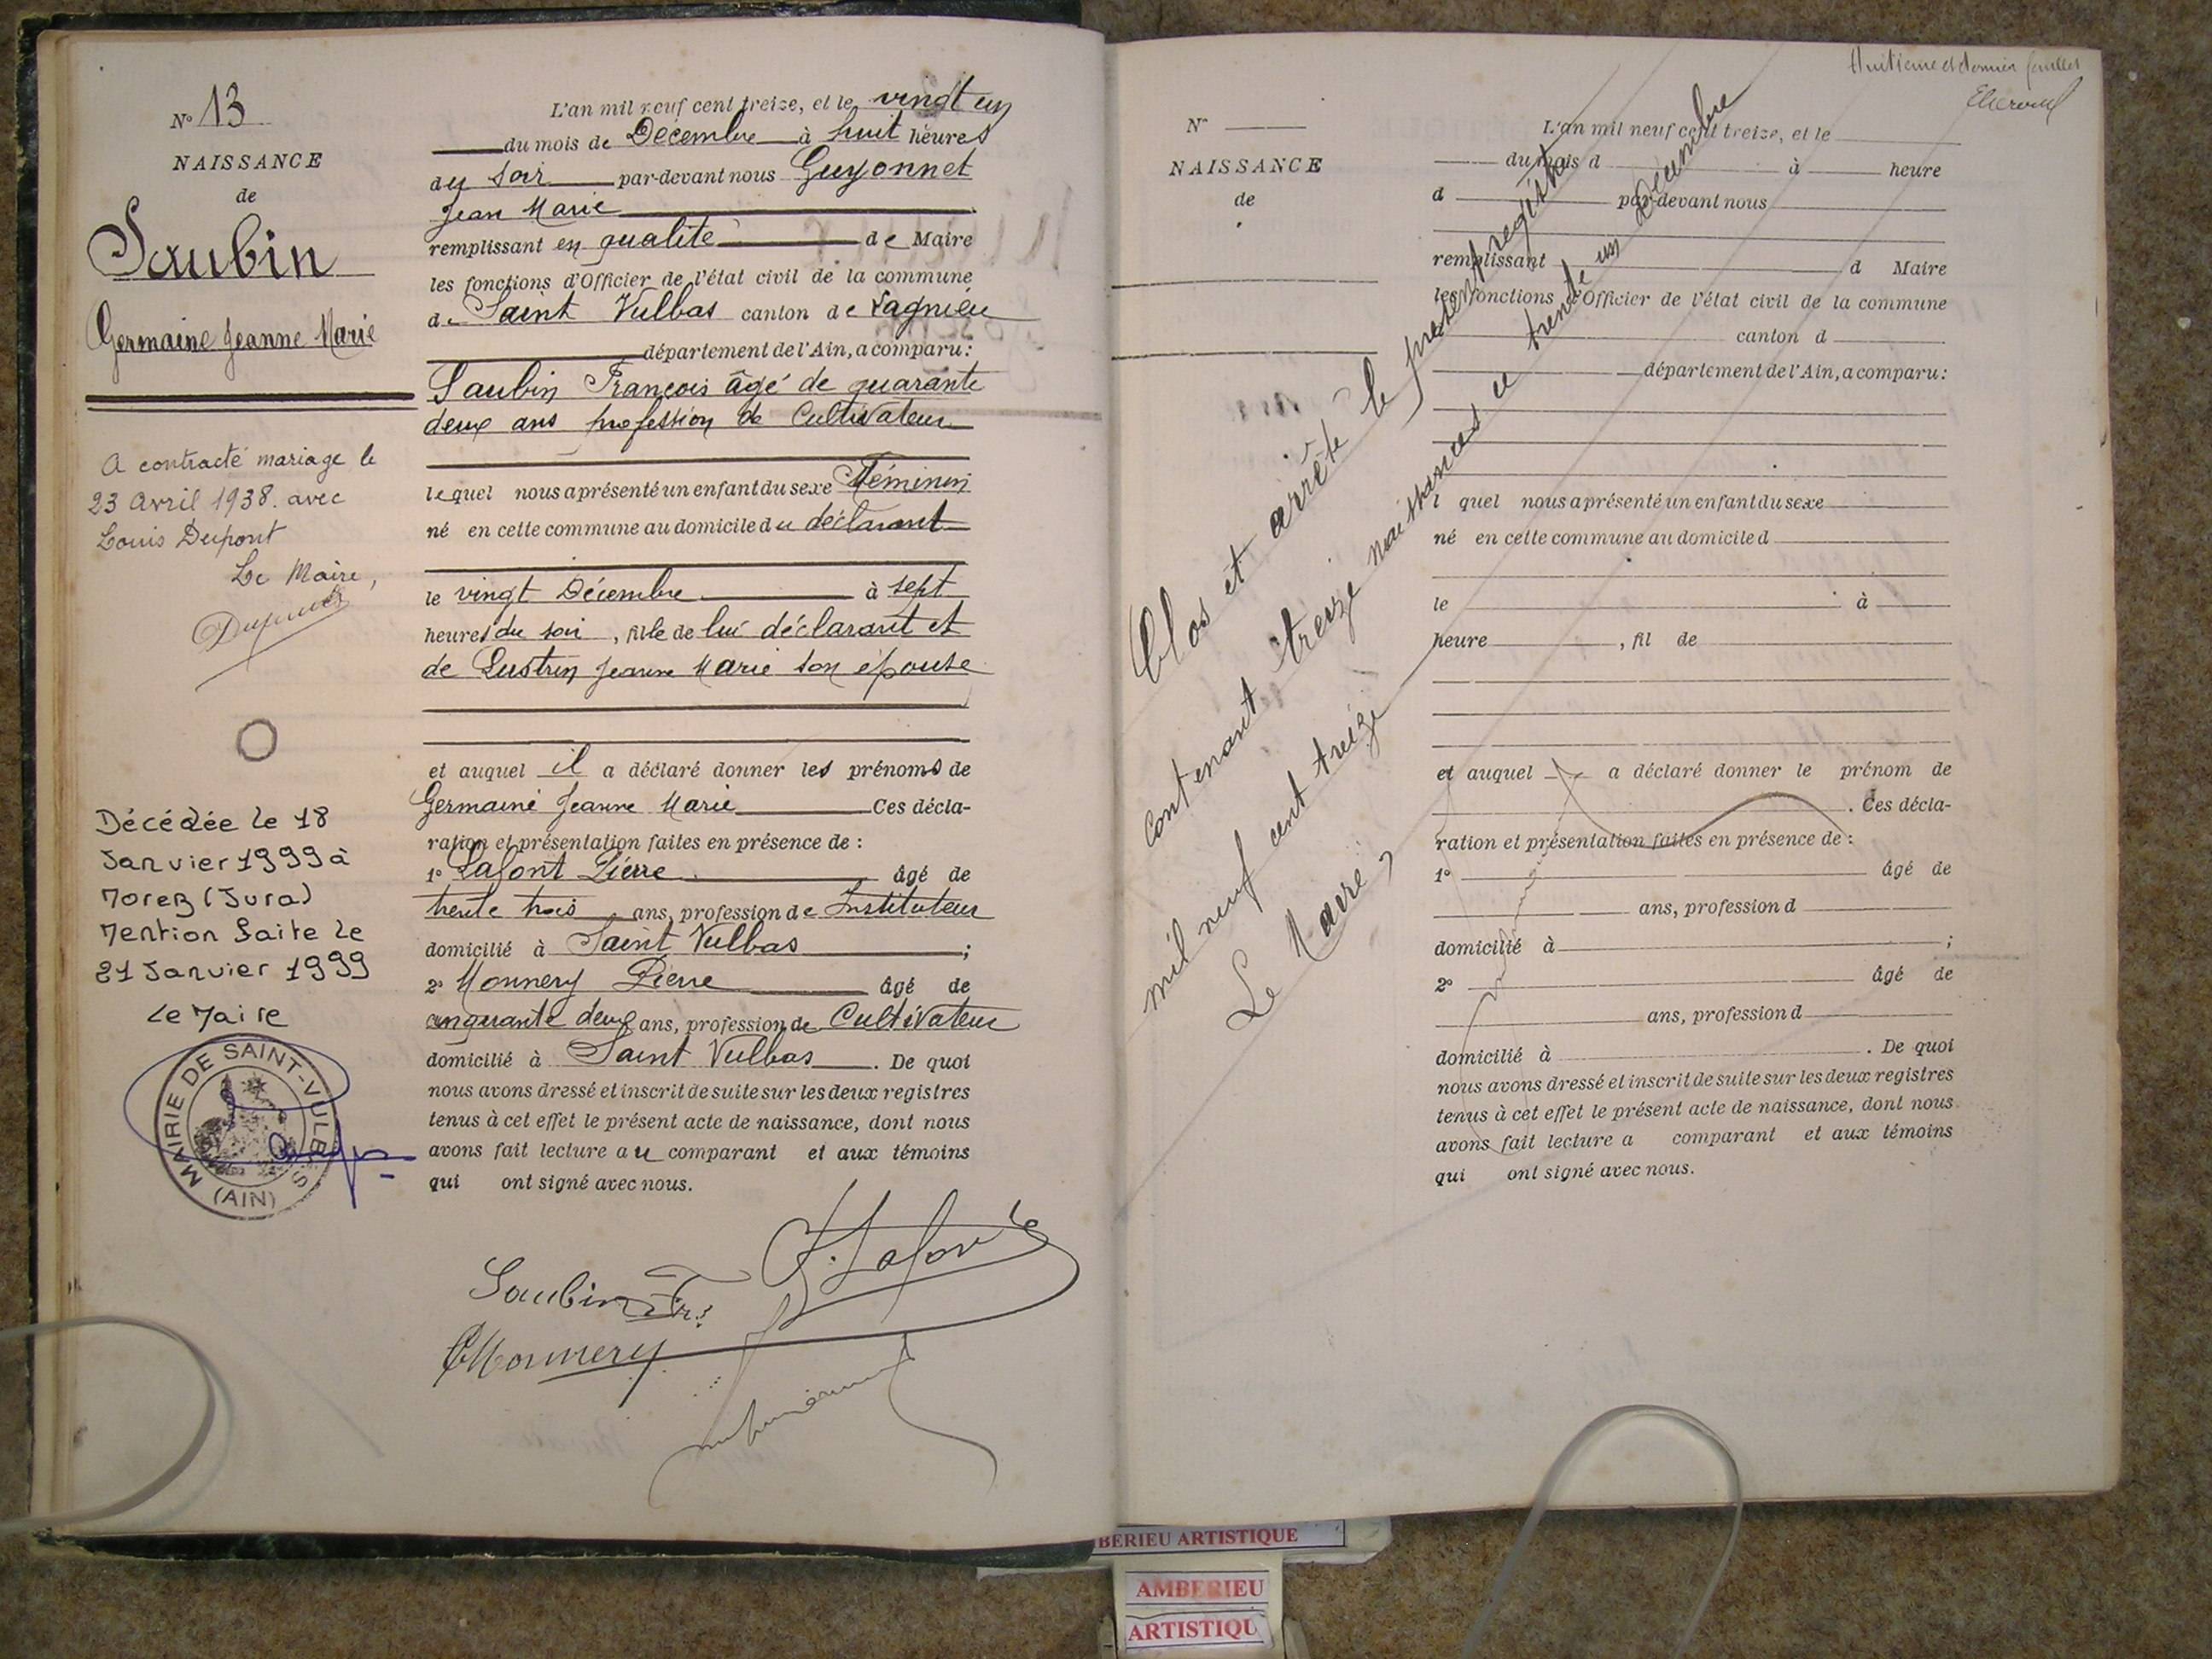 N° 13
NAISSANCE
de
Saubin
Germaine Jeanne Marie
A contracté mariage le
23 Avril 1938. avec
Louis Dupont
Le Maire,
Décédée le 18
Janvier 1999 à
Morez (Jura)
Mention faite le
21 Janvier 1999
Le Maire
MAIRIE DE SAINT-VULBAS
(AIN)
L'an mil neuf cent treize, et le vingt un
du mois de Décembre à huit heures
du soir par-devant nous Guyonnet
Jean Marie
remplissant en qualité de Maire
les fonctions d'Officier de l'état civil de la commune
de Saint Vulbas canton de Lagnieu
département de l'Ain, a comparu:
Saubin François âgé de quarante
deux ans profession de Cultivateur
lequel nous a présenté un enfant du sexe Féminin
né en cette commune au domicile du déclarant
le vingt Décembre à sept
heures du soir, fille de lui déclarant et
de Lustrin Jeanne Marie son épouse
et auquel il a déclaré donner les prénoms de
Germaine Jeanne Marie Ces décla-
ration et présentation faites en présence de :
1° Lafont Pierre âgé de
trente trois ans, profession de Instituteur
domicilié à Saint Vulbas ;
2° Monnery Pierre âgé de
cinquante deux ans, profession de Cultivateur
domicilié à Saint Vulbas . De quoi
nous avons dressé et inscrit de suite sur les deux registres
tenus à cet effet le présent acte de naissance, dont nous
avons fait lecture au comparant et aux témoins
qui ont signé avec nous.
P. Lafont
Saubin Fr.
Monnery
Huitième et dernier feuillet
N°
NAISSANCE
de
L'an mil neuf cent treize, et le
du mois d à heure
d par-devant nous
remplissant d Maire
les fonctions d'Officier de l'état civil de la commune
canton d
département de l'Ain, a comparu:
l quel nous a présenté un enfant du sexe
né en cette commune au domicile d
le à
heure , fil de
et auquel a déclaré donner le prénom de
. Ces décla-
ration et présentation faites en présence de :
1° âgé de
ans, profession d
domicilié à ;
2° âgé de
ans, profession d
domicilié à . De quoi
nous avons dressé et inscrit de suite sur les deux registres
tenus à cet effet le présent acte de naissance, dont nous
avons fait lecture a comparant et aux témoins
qui ont signé avec nous.
Clos et arrêté le présent registre
contenant treize naissances ce trente un Décembre
mil neuf cent treize
Le Maire
BERIEU ARTISTIQUE
AMBERIEU
ARTISTIQU